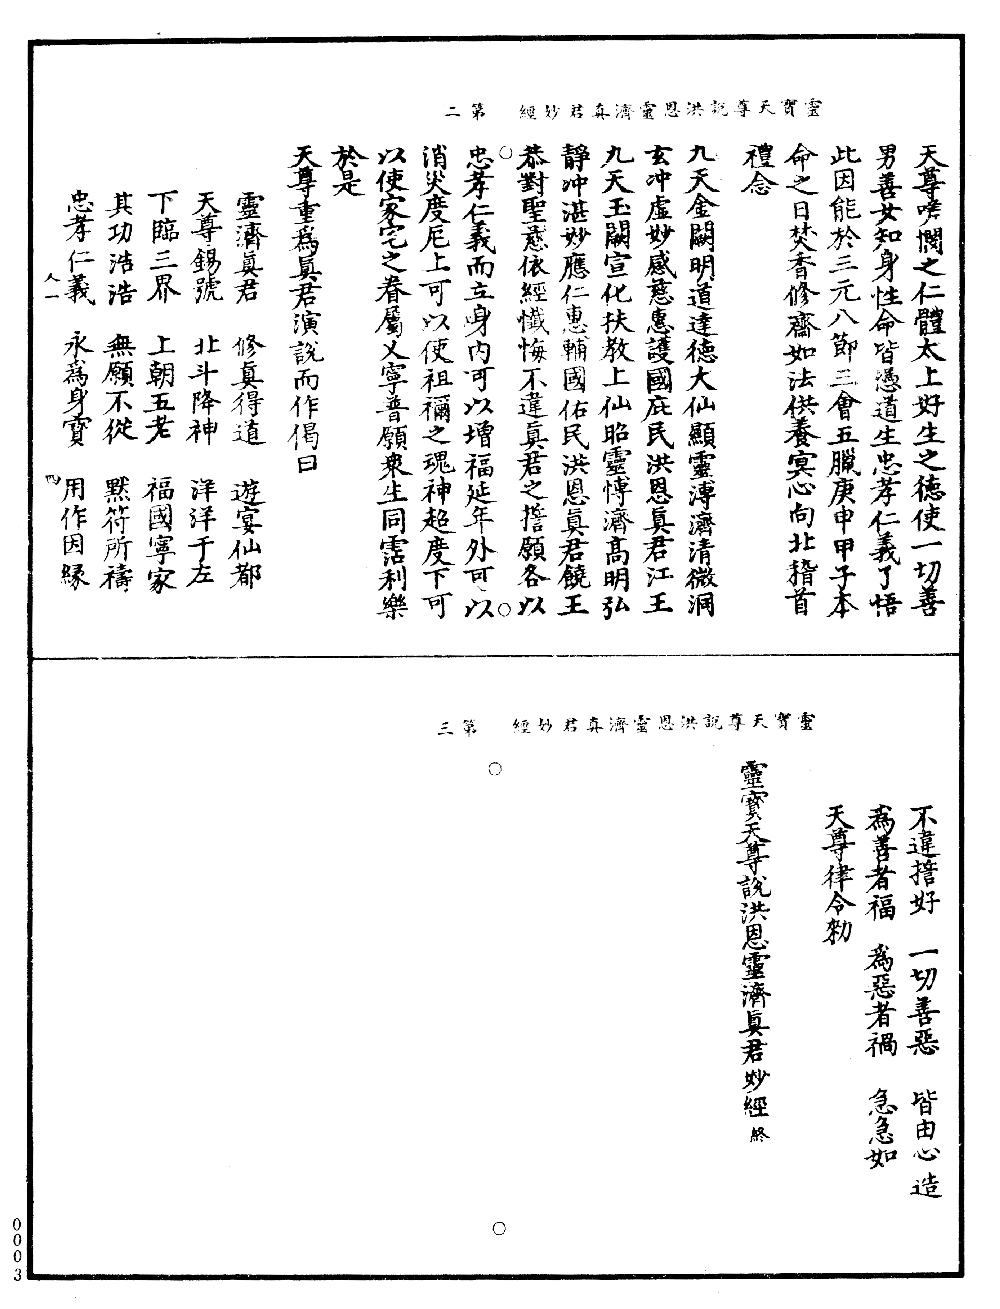 靈寶天尊說洪恩靈濟真君妙經　第二
天尊嗟憫之仁體太上好生之德使一切善
男善女知身性命皆憑道生忠孝仁義了悟
此因能於三元八節三會五臘庚申甲子本
命之日焚香修齋如法供養冥心向北稽首
禮念
九天金闕明道達德大仙顯靈溥濟清微洞
玄冲虛妙感慈惠護國庇民洪恩真君江王
九天玉闕宣化扶教上仙昭靈慱濟高明弘
靜冲湛妙應仁惠輔國佑民洪恩真君饒王
恭對聖慈依經懺悔不違真君之誓願各以
忠孝仁義而立身內可以增福延年外可以
消災度厄上可以使祖禰之魂神超度下可
以使家宅之眷屬乂寧普願衆生同霑利樂
於是
天尊重爲真君演說而作偈曰
靈濟真君　修真得道　遊宴仙都
天尊錫號　北斗降神　洋洋于左
下臨三界　上朝五老　福國寧家
其功浩浩　無願不從　黙符所禱
忠孝仁義　永爲身寶　用作因緣
人一　四
靈寶天尊說洪恩靈濟真君妙經　第三
不違誓好　一切善惡　皆由心造
爲善者福　爲惡者禍　急急如
天尊律令勑
靈寶天尊說洪恩靈濟真君妙經終
0003